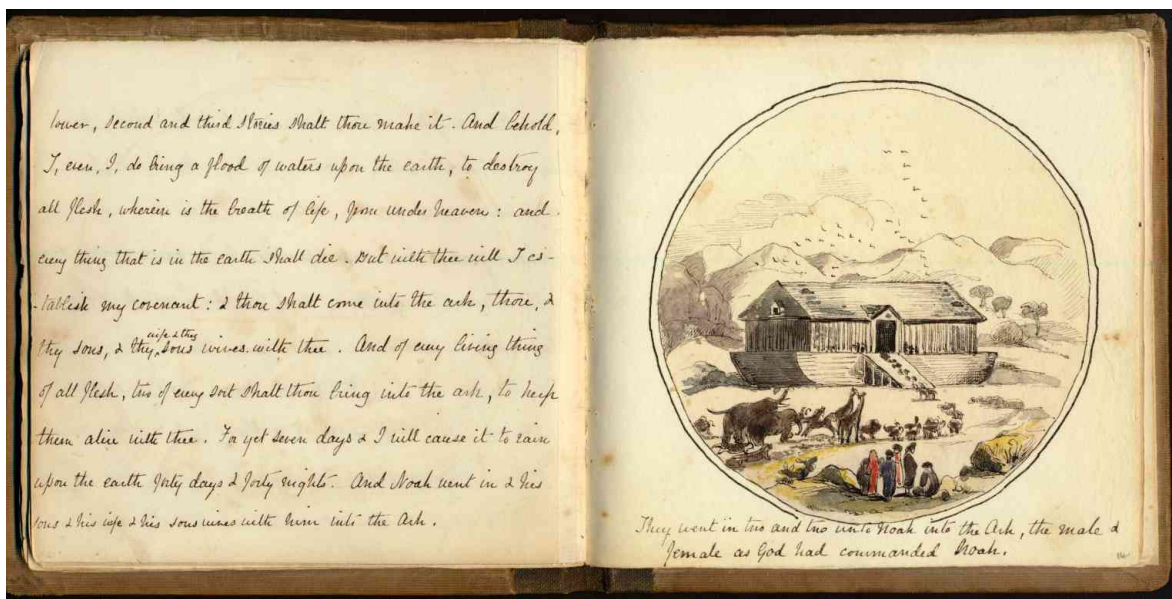 lower, second and third stories shalt thou make it. And behold,
I, even, I, do bring a flood of waters upon the earth, to destroy
all flesh, wherein is the breath of life, from under heaven: and
every thing that is in the earth shall die. But with thee will I es-
-tablish my covenant: & thou shalt come into the ark, thou, &
wife & thy
thy sons, & thy sons wives with thee. And of every living thing
of all flesh, two of every sort shalt thou bring into the ark, to keep
them alive with thee. For yet seven days & I will cause it to rain
upon the earth forty days & forty nights. And Noah went in & his
sons & his wife & his sons wives with him into the Ark.
They went in two and two unto Noah into the Ark, the male &
female as God had commanded Noah.